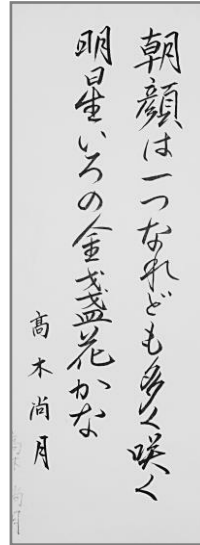 朝顔は一つなれども多く咲く
明星いろの金盞花かな
高木尚月